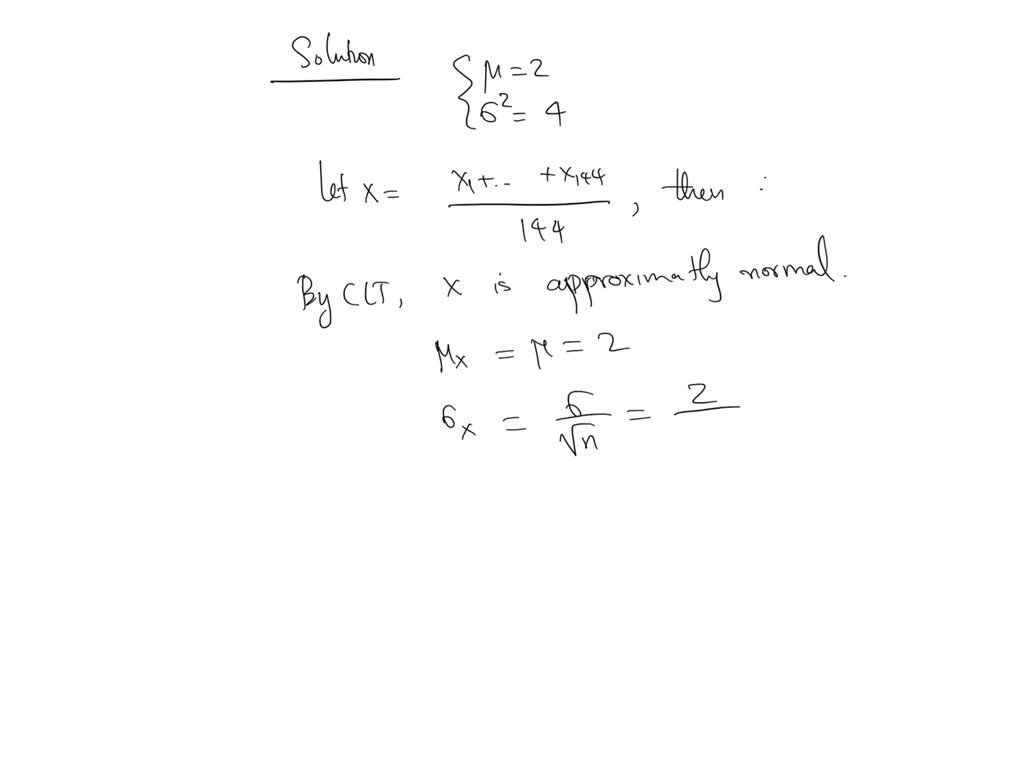 Solution
{ μ = 2
σ² = 4
let x = (x₁ + .. + x₁₄₄) / 144 , then :
By CLT, x is approximatly normal.
μₓ = μ = 2
σₓ = σ / √n = 2 /